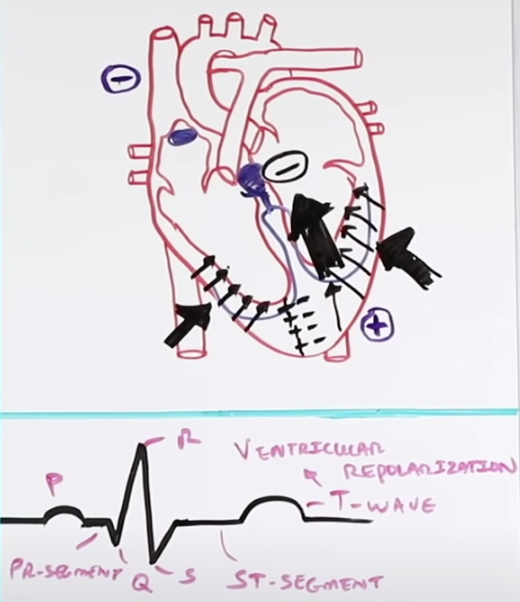 −
−
+
R
VENTRICULAR
REPOLARIZATION
P
T-WAVE
PR-SEGMENT
Q
S
ST-SEGMENT